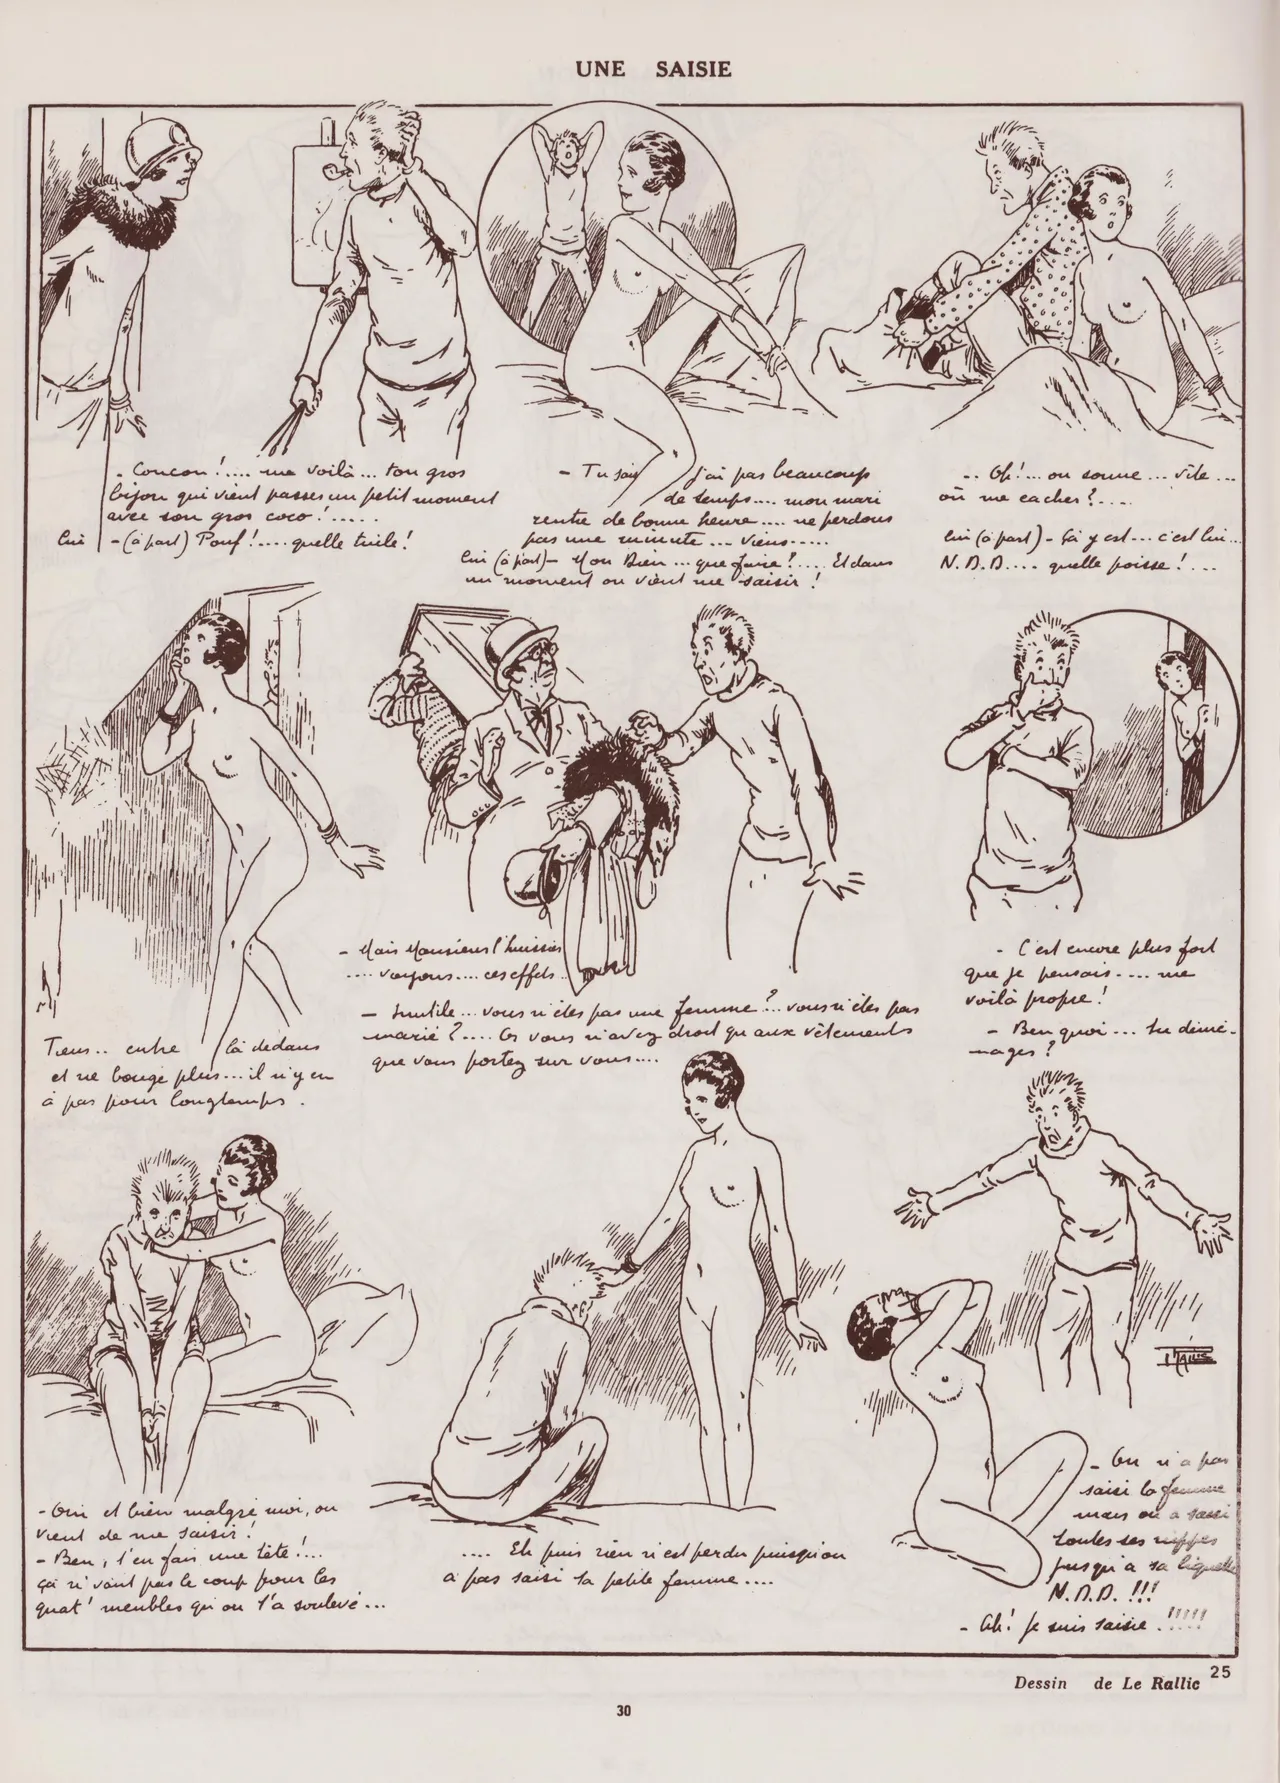 UNE SAISIE
- Coucou !.... me voilà... ton gros
bijou qui vient passer un petit moment
avec son gros coco !.....
Lui - (à part) Pouf !.... quelle tuile !
- Tu sais j'ai pas beaucoup
de temps.... mon mari
rentre de bonne heure.... ne perdons
pas une minute... viens.....
Lui (à part) - Mon Dieu... que faire ?.... Et dans
un moment on vient me saisir !
-.. Oh !... on sonne... vite...
où me cacher ?....
Lui (à part) - Ça y est... c'est lui...
N. D. D.... quelle poisse !....
Tiens.. entre là dedans
et ne bouge plus... il n'y en
a pas pour longtemps.
- Mais Monsieur l'huissier
.... voyons.... ces effets..
- Inutile... vous n'êtes pas une femme ?.. vous n'êtes pas
marié ?.... Or vous n'avez droit qu'aux vêtements
que vous portez sur vous....
- C'est encore plus fort
que je pensais.... me
voilà propre !
- Ben quoi... tu démé-
nages ?
- Oui et bien malgré moi, on
vient de me saisir !
- Ben, t'en fais une tête !...
ça n'vaut pas le coup pour les
quat' meubles qu'on t'a soulevé...
.... Et puis rien n'est perdu puisqu'on
a pas saisi ta petite femme....
- On n'a pas
saisi la femme
mais on a saisi
toutes ses nippes
jusqu'à sa liquette
N. D. D. !!!
- Ah ! Je suis saisie !!!!!
25
Dessin de Le Rallic
30